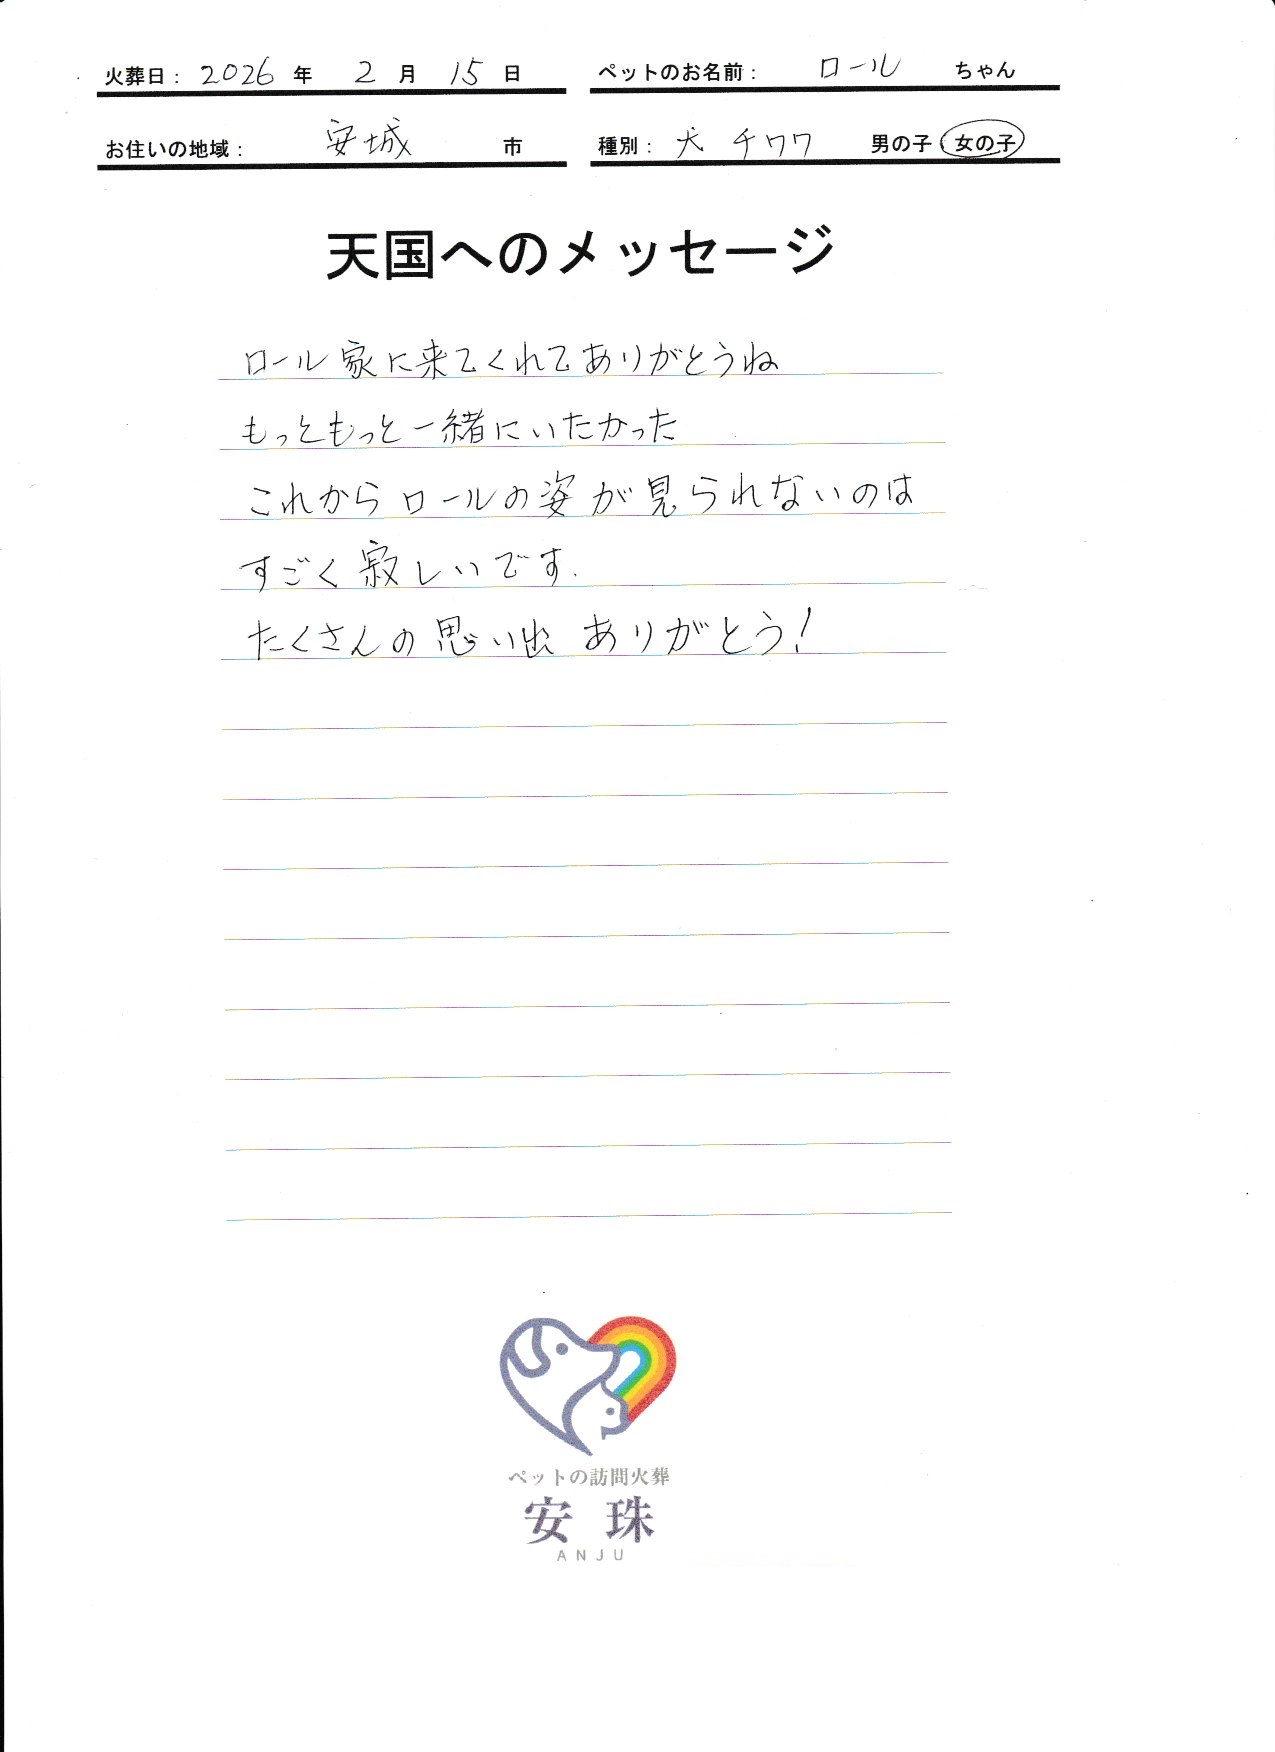 火葬日： 2026 年 2 月 15 日 ペットのお名前： ロール ちゃん
お住いの地域： 安城 市 種別： 犬 チワワ 男の子・女の子
天国へのメッセージ
ロール 家に来てくれてありがとうね
もっともっと一緒にいたかった
これからロールの姿が見られないのは
すごく寂しいです.
たくさんの思い出 ありがとう！
ペットの訪問火葬
安珠
ANJU